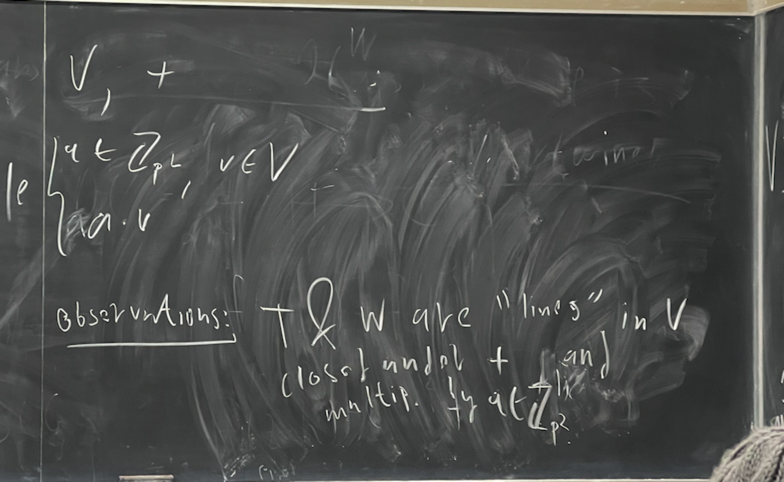 V, +
a ∈ ℤ_p², v ∈ V
a·v
Observations: T & W are "lines" in V
closed under + and
multip. by a ∈ ℤ_p²